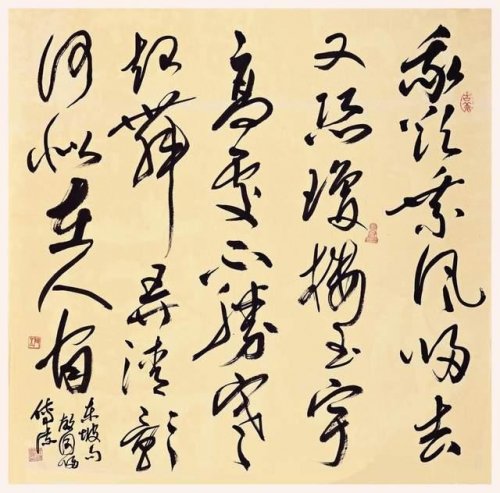 我欲乘風歸去
又恐瓊樓玉宇
高處不勝寒
起舞弄清影
何似在人間
東坡句